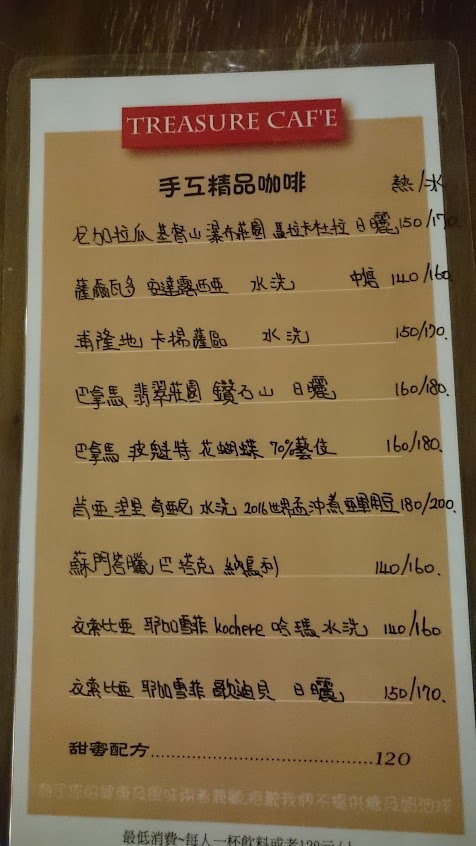 TREASURE CAF'E
手工精品咖啡 熱/冰
尼加拉瓜 基督山 瀑布莊園 馬拉卡杜拉 日曬 150/170
薩爾瓦多 安達露西亞 水洗 中焙 140/160
甫隆地 卡揚薩區 水洗 150/170.
巴拿馬 翡翠莊園 鑽石山 日曬 160/180.
巴拿馬 波魁特 花蝴蝶 70%藝伎 160/180.
肯亞 涅里 奇亞尼 水洗 2016世界盃沖煮亞軍用豆 180/200.
蘇門答臘 巴塔克 納烏利 140/160.
衣索比亞 耶加雪菲 kochere 哈瑪 水洗 140/160
衣索比亞 耶加雪菲 歌迪貝 日曬 150/170.
甜蜜配方......................................120
為了您的健康及風味兩者兼顧,抱歉我們不提供糖及奶油球
最低消費~每人一杯飲料或者120元/